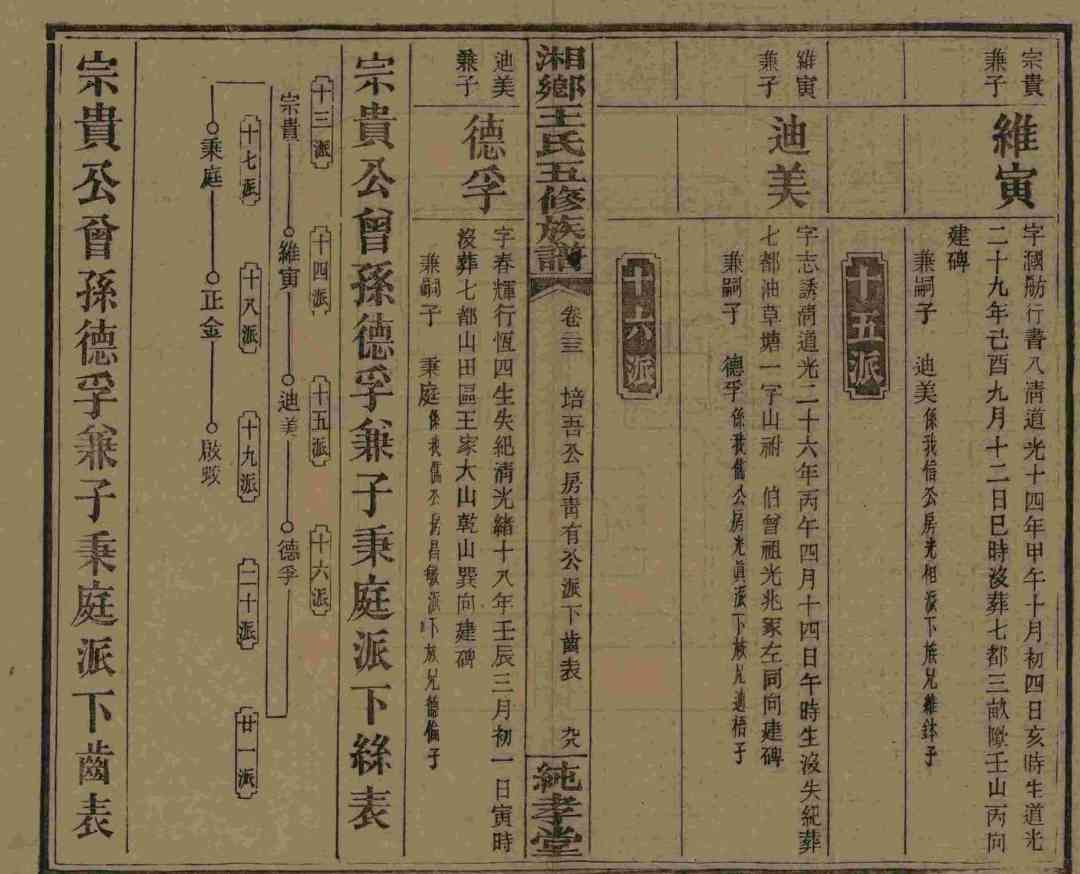 宗貴
兼子
維寅
字國舫行書八清道光十四年甲午十月初四日亥時生道光
二十九年己酉九月十二日巳時沒葬七都三畝壠壬山丙向
建碑
兼嗣子 迪美係我信公房光相派下族兄維鉢子
十五派
維寅
兼子
迪美
字志誘清道光二十六年丙午四月十四日午時生沒失紀葬
七都油草塘一字山祔 伯曾祖光兆冢左同向建碑
兼嗣子 德孚係我儒公房光眞派下族兄迪梧子
十六派
湘鄉王氏五修族譜
卷三三 培吾公房靑有公派下齒表 九八
純孝堂
迪美
兼子
德孚
字春輝行恆四生失紀清光緒十八年壬辰三月初一日寅時
沒葬七都山田區王家大山乾山巽向建碑
兼嗣子 秉庭係我儒公房昌敏派下族兄德倫子
宗貴公曾孫德孚兼子秉庭派下絲表
十三派 十四派 十五派 十六派
宗貴 維寅 迪美 德孚
十七派 十八派 十九派 二十派 廿一派
秉庭 正金 啟蛟
宗貴公曾孫德孚兼子秉庭派下齒表